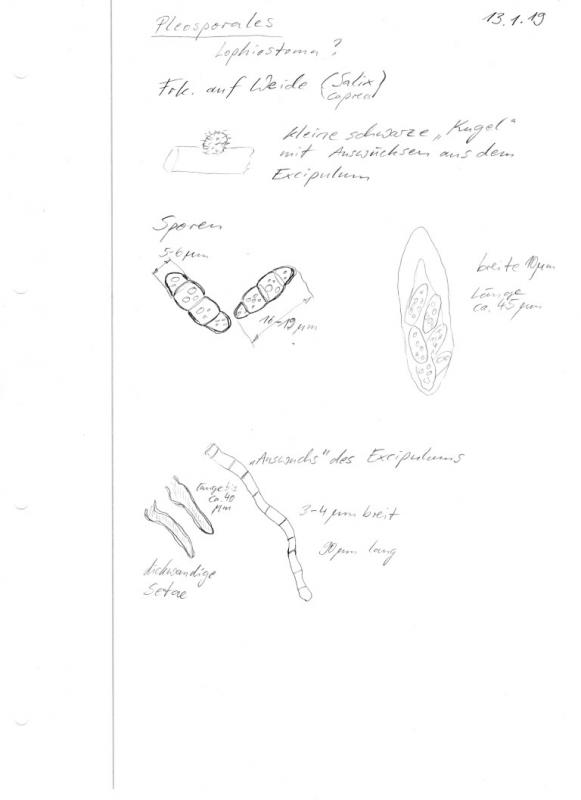 Pleosporales
13.1.19
Lophiostoma ?
Frk. auf Weide (Salix
caprea)
kleine schwarze „Kugel"
mit Auswüchsen aus dem
Excipulum
Sporen
5-6 µm
16-19 µm
breite 10µm
Länge
ca. 45 µm
„Auswuchs" des Excipulums
Länge bis
ca. 40
µm
3-4 µm breit
90 µm lang
dickwandige
Setae